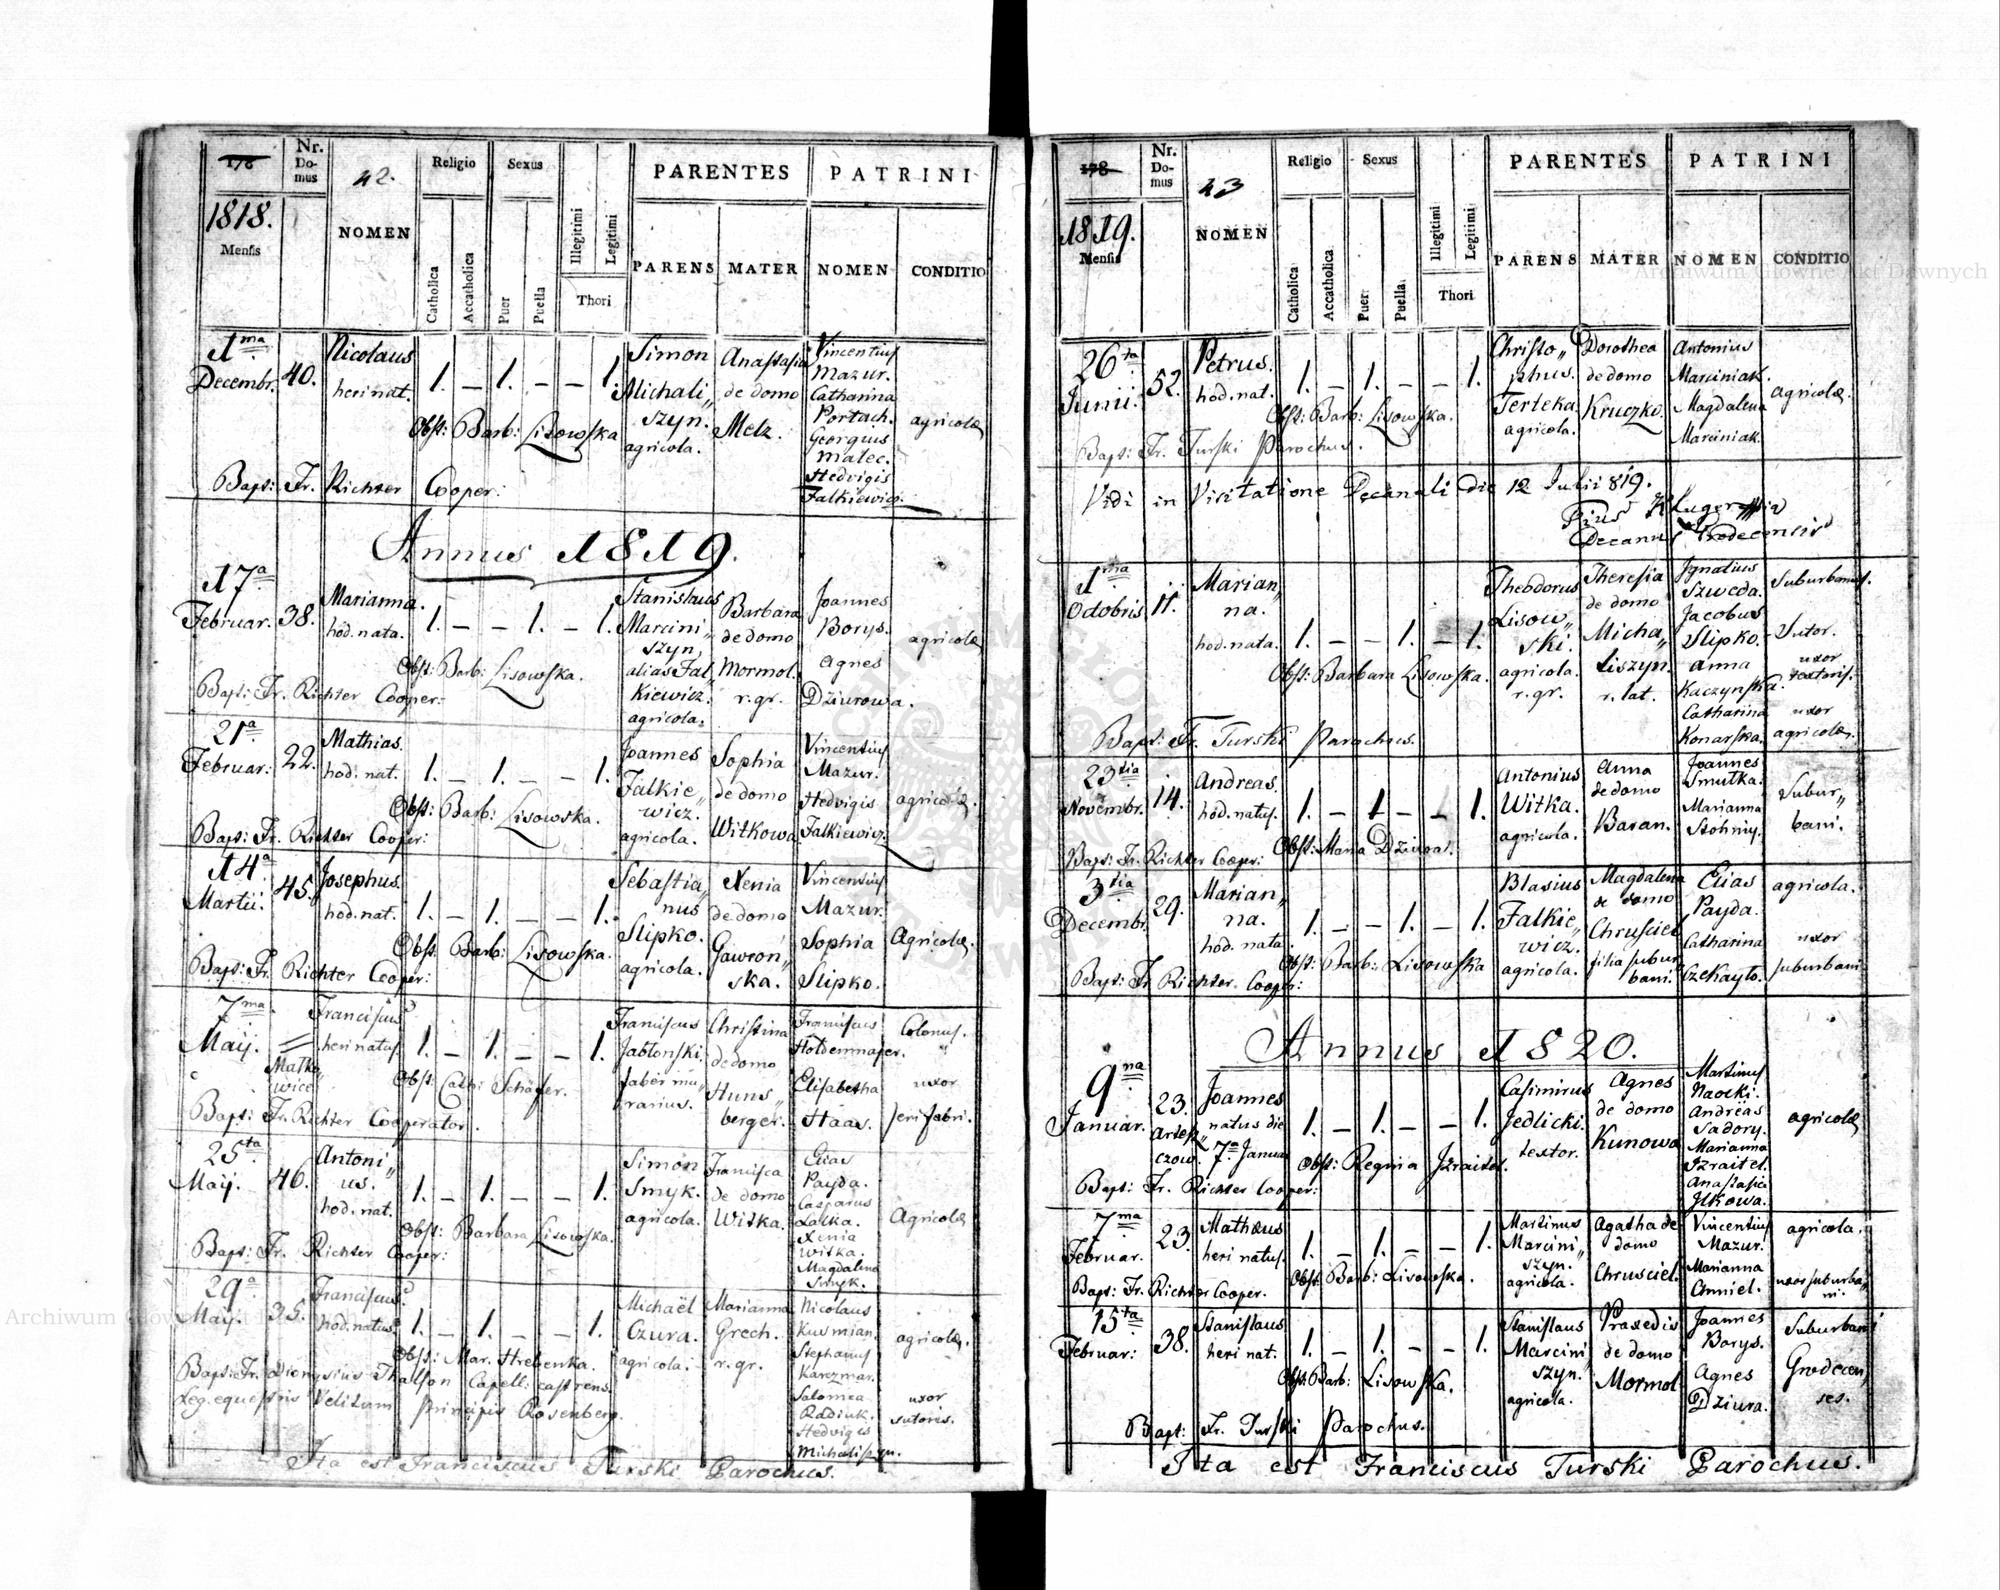 178
Nr.
Do-
mus
42.
Religio
Sexus
PARENTES
PATRINI
1818.
Mensis
NOMEN
Catholica
Accatholica
Puer
Puella
Illegitimi
Legitimi
Thori
PARENS
MATER
NOMEN
CONDITIO
1ma
Decembr.
40.
Nicolaus
heri nat.
1. — 1. — — 1.
Obst: Barb: Lisowska
Simon
Michali„
szyn.
agricola.
Anastasia
de domo
Melz.
Vincentius
Mazur.
Catharina
Portach.
Georgius
Malec.
Hedvigis
Falkiewicz.
agricolæ
Bapt: Fr. Richter Cooper:
Annus 1819.
17a
Februar.
38.
Marianna.
hod. nata.
1. — — 1. — 1.
Obst: Barb: Lisowska.
Stanislaus
Marcini„
szyn
alias Fal„
kiewicz.
agricola.
Barbara
de domo
Mormol.
r. gr.
Joannes
Borys.
Agnes
Dziurowa.
agricolæ
Bapt: Fr. Richter Cooper:
21a
Februar:
22.
Mathias.
hod. nat.
1. — 1. — — 1.
Obst: Barb: Lisowska.
Joannes
Falkie„
wicz.
agricola.
Sophia
de domo
Witkowa
Vincentius
Mazur.
Hedvigis
Falkiewicz.
agricolæ.
Bapt: Fr. Richter Cooper:
14a
Martii.
45.
Josephus.
hod. nat.
1. — 1. — — 1.
Obst: Barb: Lisowska.
Sebastia„
nus
Slipko.
agricola.
Xenia
de domo
Gawron„
ska.
Vincentius
Mazur.
Sophia
Slipko.
Agricolæ
Bapt: Fr. Richter Cooper:
7ma
Maij.
Matko„
wice
Franciscus
heri natus
1. — 1. — — 1.
Obst: Cath: Schäfer.
Franciscus
Jabłonski.
faber mu„
rarius.
Christina
de domo
Huns„
berger.
Franciscus
Holdenmajer.
Elisabetha
Haas.
Colonus.
uxor
feri fabri.
Bapt: Fr. Richter Cooperator.
25ta
Maij.
46.
Antoni„
us.
hod. nat.
1. — 1. — — 1.
Obst: Barbara Lisowska.
Simon
Smyk.
agricola.
Francisca
de domo
Witka.
Elias
Payda.
Casparus
Lalka.
Xenia
Witka.
Magdalena
Smyk.
Agricolæ
Bapt: Fr. Richter Cooper:
29a
Maij.
35.
Franciscus
hod. natus.
1. — 1. — — 1.
Obst: Mar. Hrebenka.
Michaël
Czura.
agricola.
Marianna
Grech.
r. gr.
Nicolaus
Kusmian.
Stephanus
Karczmar.
Salomea
Radiuk.
Hedvigis
Michaliszyn.
agricolæ.
uxor
sutoris.
Bapt: Fr. Dionysius Thalson Capell: castrens.
Leg. equestris Velitum Principis Rosenberg.
Ita est Franciscus Turski Parochus.
178
Nr.
Do-
mus
43
Religio
Sexus
PARENTES
PATRINI
1819.
Mensis
NOMEN
Catholica
Accatholica
Puer
Puella.
Illegitimi
Legitimi
Thori
PARENS
MATER
NOMEN
CONDITIO
26ta
Junii.
52.
Petrus.
hod. nat.
1. — 1. — — 1.
Obst: Barb: Lisowska.
Christo„
phus.
Terteka.
agricola.
Dorothea
de domo
Kruczko.
Antonius
Marciniak.
Magdalena
Marciniak.
agricolæ.
Bapt: Fr. Turski Parochus.
Vidi in Visitatione Decanali die 12 Julii 819.
Pius Kluger
Decanus Grodecensis
1ma
Octobris
11.
Marian„
na.
hod. nata.
1. — — 1. — 1.
Obst: Barbara Lisowska.
Theodorus
Lisow„
ski.
agricola.
r. gr.
Theresia
de domo
Micha„
liszyn.
r. lat.
Ignatius
Szweda.
Jacobus
Slipko.
Anna
Kaczynska.
Catharina
Konarska.
Suburbanus.
Sutor.
uxor
textoris.
uxor
agricolæ.
Bapt: Fr. Turski Parochus.
23tia
Novembr.
14.
Andreas.
hod. natus.
1. — 1 — — 1.
Obst: Maria Dziura.
Antonius
Witka.
agricola.
Anna
de domo
Baran.
Joannes
Smutka.
Marianna
Stohniy.
Subur„
bani.
Bapt: Fr. Richter Cooper:
3tia
Decembr.
29.
Marian„
na.
hod. nata.
1. — — 1. — 1.
Obst: Barb: Lisowska
Blasius
Falkie„
wicz.
agricola.
Magdalena
de domo
Chrusciel
filia subur„
bani.
Elias
Payda.
Catharina
Czekayło.
agricola.
uxor
suburbani
Bapt: Fr. Richter. Cooper:
Annus 1820.
9na
Januar.
23.
Artesz„
czow.
Joannes
natus die
7a Januar
1. — 1. — — 1.
Obst: Regina Izraitel.
Casimirus
Jedlicki.
textor.
Agnes
de domo
Kunowa
Martinus
Naocki.
Andreas
Sadory.
Marianna
Izraitel.
Anastasia
Ilkowa.
agricolæ
Bapt: Fr. Richter Cooper:
7ma
Februar.
23.
Mathæus
heri natus.
1. — 1. — — 1.
Obst: Barb: Lisowska.
Martinus
Marcini„
szyn.
agricola.
Agatha de
domo
Chrusciel.
Vincentius
Mazur.
Marianna
Chmiel.
agricola.
uxor suburba„
ni.
Bapt: Fr. Richter Cooper.
15ta
Februar:
38.
Stanislaus
heri nat.
1. — 1. — — 1.
Obst: Barb: Lisowska.
Stanislaus
Marcini„
szyn.
agricola.
Praxedis
de domo
Mormol
Joannes
Borys.
Agnes
Dziura.
Suburbani
Grodecen„
ses.
Bapt: Fr. Turski Parochus.
Ita est Franciscus Turski Parochus.
Archiwum Główne Akt Dawnych